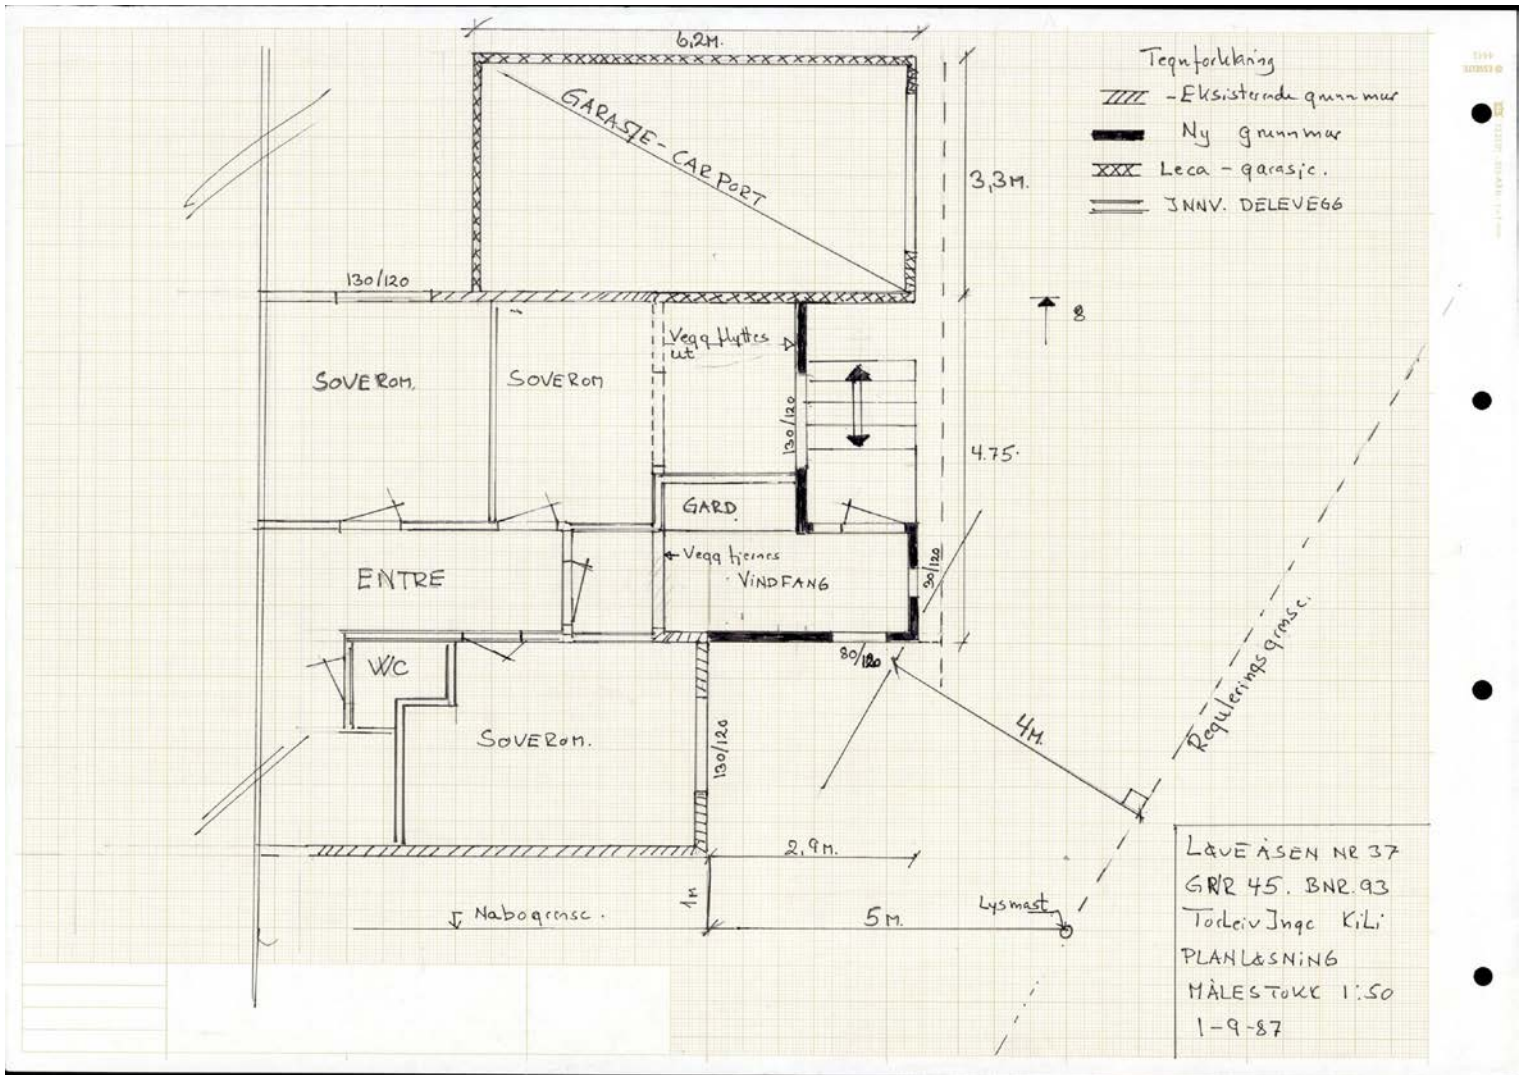 6,2M.
Tegnforklaring
- Eksisterende grunnmur
Ny grunnmur
Leca - garasje.
INNV. DELEVEGG
GARASJE - CARPORT
3,3M.
130/120
8
Vegg flyttes
ut
SOVEROM.
SOVEROM
130/120
4.75.
GARD.
ENTRE
← Vegg fjernes
VINDFANG
30/120
WC
80/120
SOVEROM.
130/120
4M.
Reguleringsgrense.
2,9M.
1M
Nabogrense.
5M.
Lysmast
LAVEÅSEN NR 37
GNR 45. BNR. 93
Torleiv Inge KiLi
PLANLØSNING
MÅLESTOKK 1:50
1-9-87